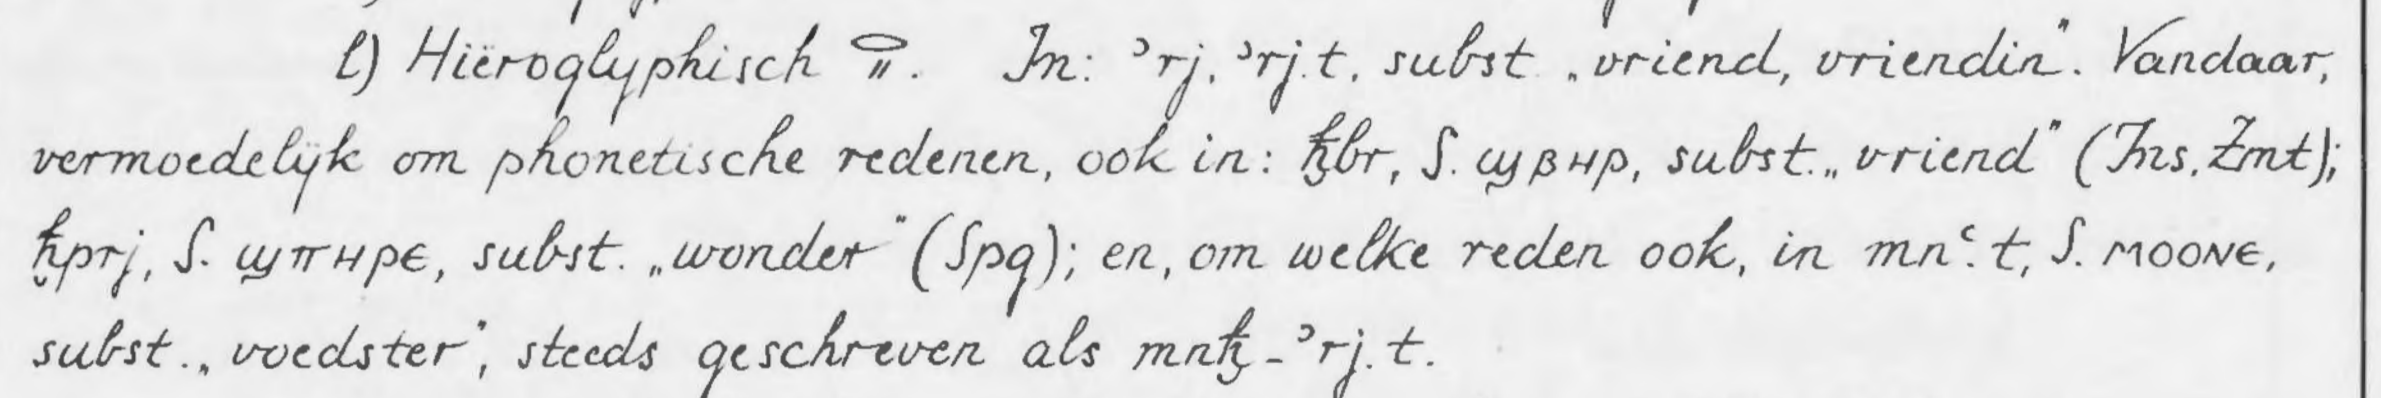 l) Hiëroglyphisch 𓂋𓏭. In: ʾrj, ʾrj.t, subst. „vriend, vriendin". Vandaar,
vermoedelijk om phonetische redenen, ook in: ħ̮br, S. ϣⲃⲏⲣ, subst. „vriend" (Ins. Żmt);
ħ̮prj, S. ϣⲡⲏⲣⲉ, subst. „wonder" (Spg); en, om welke reden ook, in mnʿ.t, S. ⲙⲟⲟⲛⲉ,
subst. „voedster", steeds geschreven als mnħ̮-ʾrj.t.